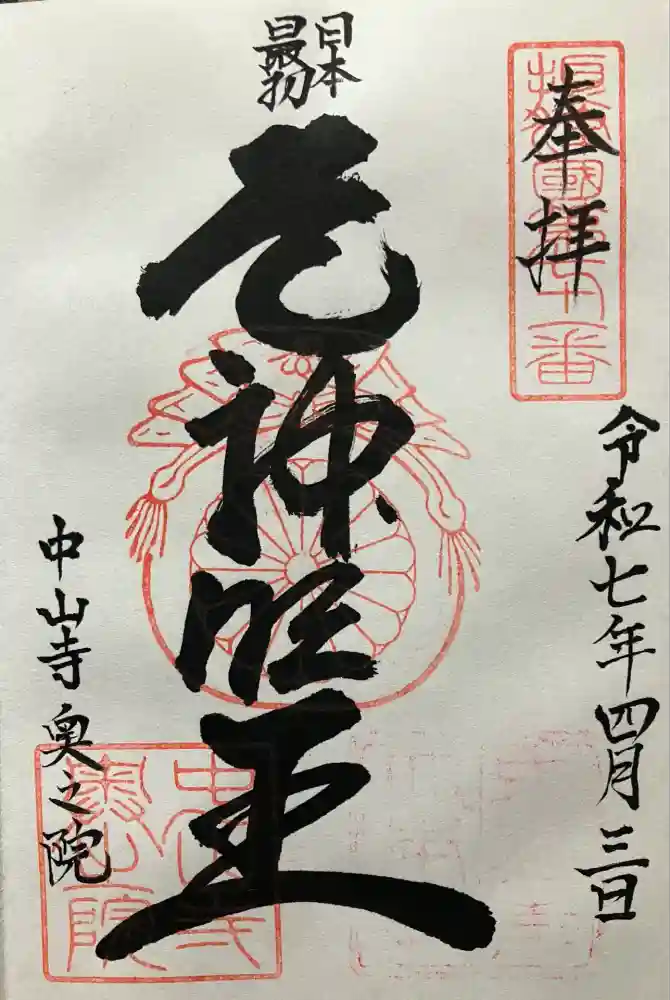 奉拝
國第十一番
令和七年四月三日
日本
最初
厄神明王
中山寺奥之院
中山寺
奥之院